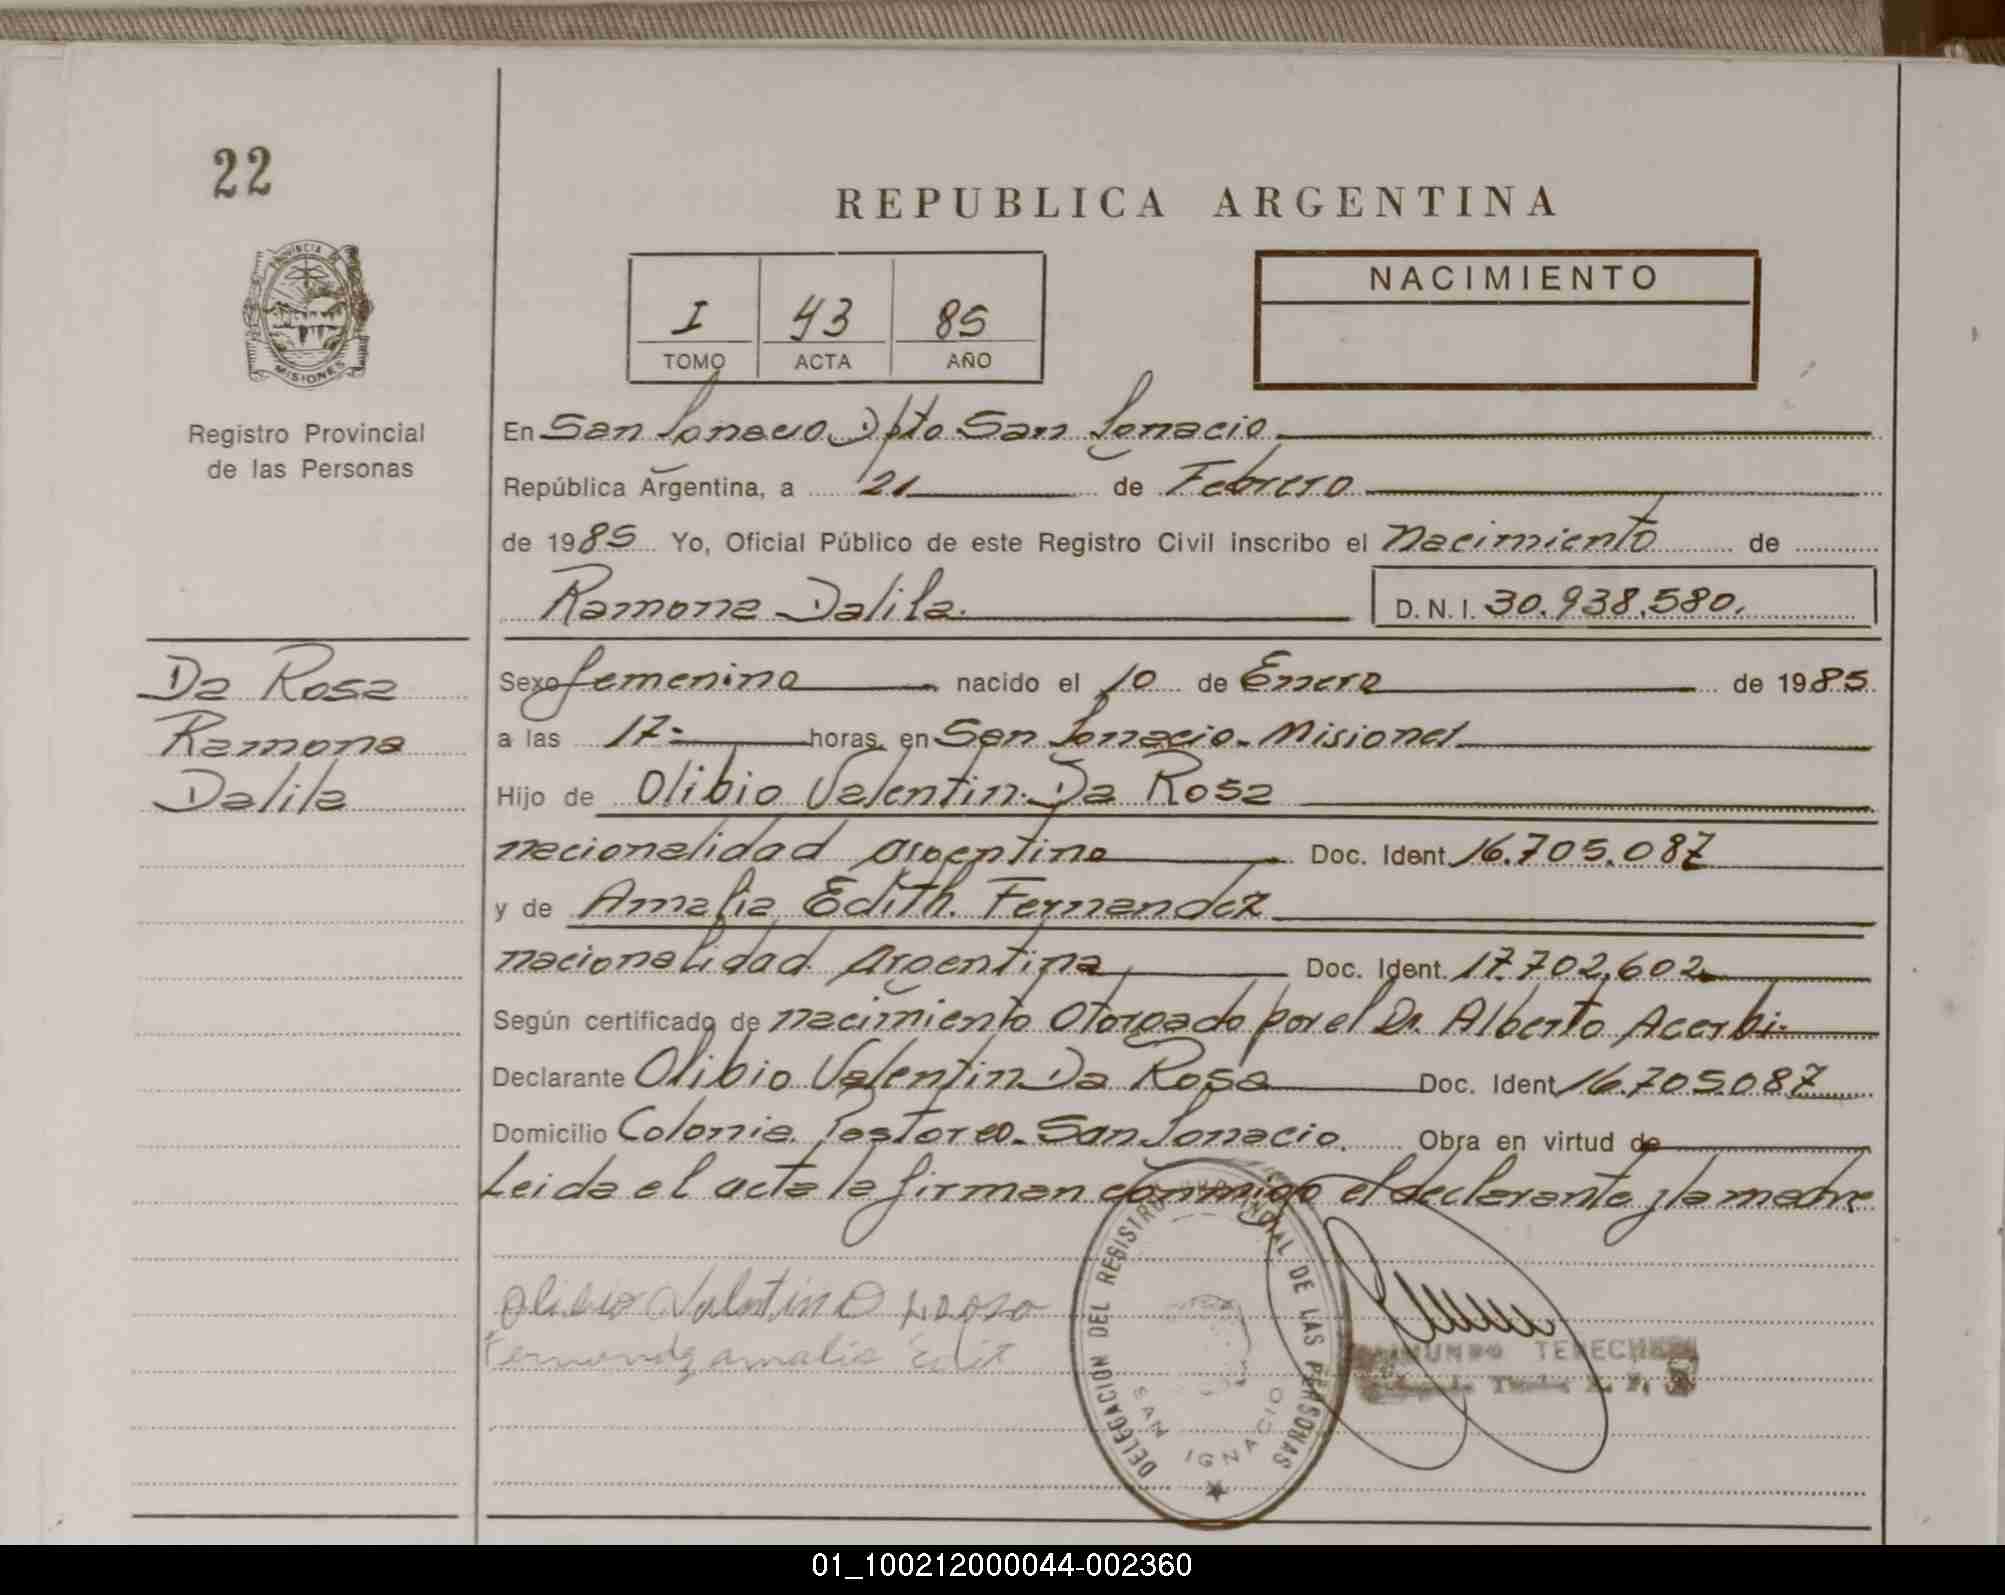 22
REPUBLICA ARGENTINA
PROVINCIA DE
MISIONES
Registro Provincial
de las Personas
I 43 85
TOMO ACTA AÑO
NACIMIENTO
En San Ignacio Dpto San Ignacio
República Argentina, a 21 de Febrero
de 1985 Yo, Oficial Público de este Registro Civil inscribo el Nacimiento de
Ramona Dalila. D.N.I. 30.938.580.
Da Rosa
Ramona
Dalila
Sexo femenino nacido el 10 de Enero de 1985
a las 17- horas, en San Ignacio-Misiones
Hijo de Olibio Valentin Da Rosa
nacionalidad argentino Doc. Ident. 16.705.087
y de Amalia Edith Fernandez
nacionalidad argentina Doc. Ident. 17.702.602
Según certificado de nacimiento otorgado por el Dr. Alberto Acerbi
Declarante Olibio Valentin Da Rosa Doc. Ident. 16.705.087
Domicilio Colonia Pastoreo-San Ignacio. Obra en virtud de
Leida el acta la firman conmigo el declarante y la madre
Olibio Valentin D
Fernandez amalia edit
DELEGACION DEL REGISTRO PROVINCIAL DE LAS PERSONAS
SAN IGNACIO
01_100212000044-002360